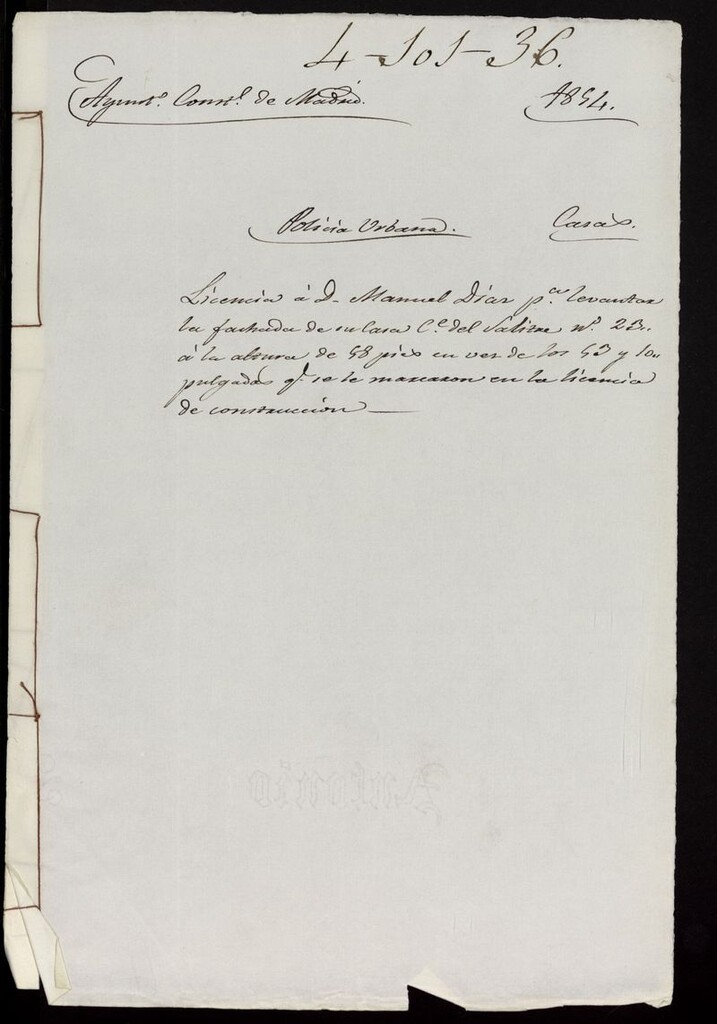 4-101-36.
Ayunt.º Const.l de Madrid. 1854.
Policia Urbana. Casas.
Licencia á D. Manuel Diaz p.a levantar
la fachada de su casa C.e del Salitre n.º 23.
á la altura de 58 pies en vez de los 53 y 10,,
pulgadas q.e se le marcaron en la licencia
de construccion
Antonio